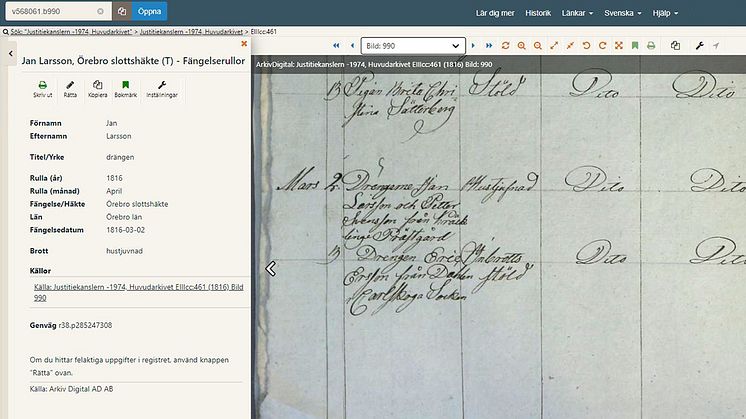 v568061.b990
Öppna
Lär dig mer Historik Länkar Svenska Hjälp
Sök: "Justitiekanslern -1974, Huvudarkivet" > Justitiekanslern -1974, Huvudarkivet > EIIIcc461
Bild: 990
Jan Larsson, Örebro slottshäkte (T) - Fängelserullor
ArkivDigital: Justitiekanslern -1974, Huvudarkivet EIIIcc461 (1816) Bild: 990
Skriv ut Rätta Kopiera Bokmärk Inställningar
Förnamn Jan
Efternamn Larsson
Titel/Yrke drängen
Rulla (år) 1816
Rulla (månad) April
Fängelse/Häkte Örebro slottshäkte
Län Örebro län
Fängelsedatum 1816-03-02
Brott hustjuvnad
Källor
Källa: Justitiekanslern -1974, Huvudarkivet EIIIcc461 (1816) Bild
990
Genväg r38.p285247308
Om du hittar felaktiga uppgifter i registret, använd knappen
"Rätta" ovan.
Källa: Arkiv Digital AD AB
13 Pigan Brita Chri Stöld Dito Dito
stina Sätterberg
Mars 2 Drengarne Jan Hustjufnad Dito Dito
Larsson och Petter
Svensson från
linge Prästgård
13 Drengen Eric Inbrotts Dito Dito
Ersson från Dahlen stöld
Carlskoga Socken